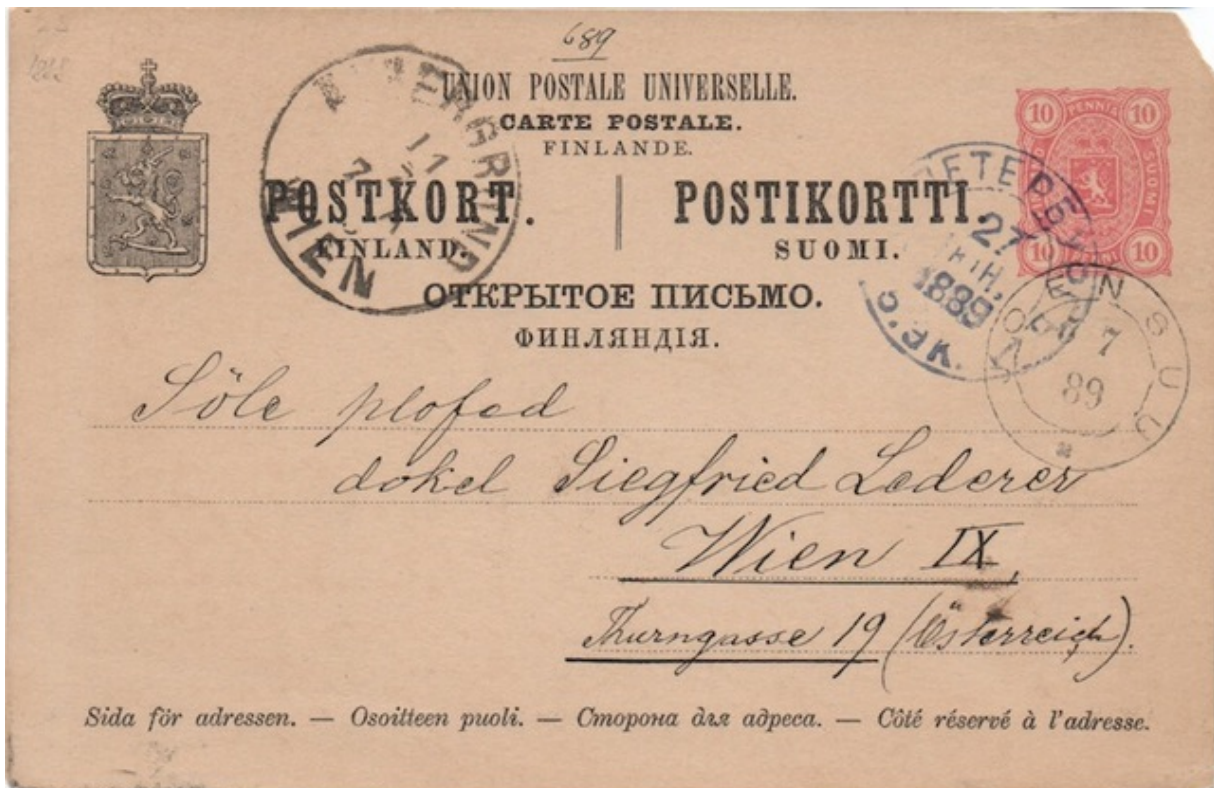 689
UNION POSTALE UNIVERSELLE.
CARTE POSTALE.
FINLANDE.
POSTKORT. POSTIKORTTI
FINLAND. SUOMI.
ОТКРЫТОЕ ПИСЬМО.
ФИНЛЯНДІЯ.
10 PENNIA 10
SUOMI
10 10
WIEN
27
1889
7
89
Söle plofed
dokel Siegfried Lederer
Wien IX,
Thurngasse 19 (Österreich).
Sida för adressen. — Osoitteen puoli. — Сторона для адреса. — Côté réservé à l'adresse.